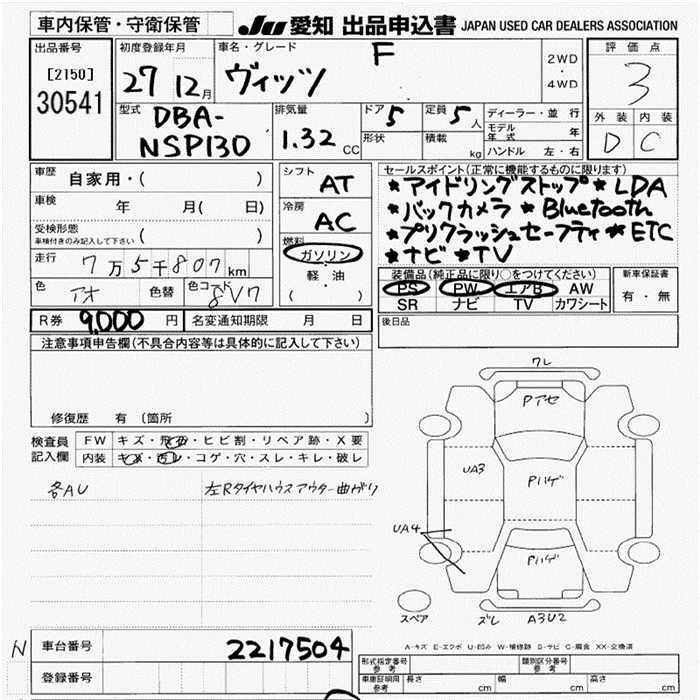 車内保管・守衛保管
JU 愛知 出品申込書 JAPAN USED CAR DEALERS ASSOCIATION
出品番号 [2150] 30541
初度登録年月 27 12月
車名・グレード ヴィッツ F
2WD・4WD
評価点 3
外装 内装
D C
型式 DBA-NSP130
排気量 1.32 CC
ドア 5
形状
定員 5人
積載 kg
ディーラー・並行
モデル年式 年
ハンドル 左・右
車歴 自家用・( )
車検 年 月( 日)
受検形態 車検付きのみ記入して下さい ( )
走行 7万5千807km
色 アオ 色替 色コード 8V7
シフト AT
冷房 AC
燃料 ガソリン
軽・油
( )
セールスポイント(正常に機能するものに限ります)
*アイドリングストップ*LDA
*バックカメラ *Bluetooth
*プリクラッシュセーフティ *ETC
*ナビ *TV
装備品(純正品に限り○をつけてください)
PS PW エアB AW
SR ナビ TV カワシート
新車保証書
有・無
R券 9,000 円 名変通知期限 月 日
後日品
注意事項申告欄(不具合内容等は具体的に記入して下さい)
修復歴 有 (箇所 )
検査員記入欄
FW キズ・飛石・ヒビ割・リペア跡・X要
内装 キズ・汚レ・コゲ・穴・スレ・キレ・破レ
各AU 左Rタイヤハウスアウター曲がり
ワレ
Pアセ
UA3
Pハゲ
UA4
Pハゲ
スペア
ズレ A3U2
A-キズ E-エクボ U-凹み W-補修跡 S-サビ C-腐食 XX-交換済
N 車台番号 2217504
登録番号
形式指定番号 参考 類別区分番号 参考
車庫証明用 参考 長さ cm 幅 cm 高さ cm